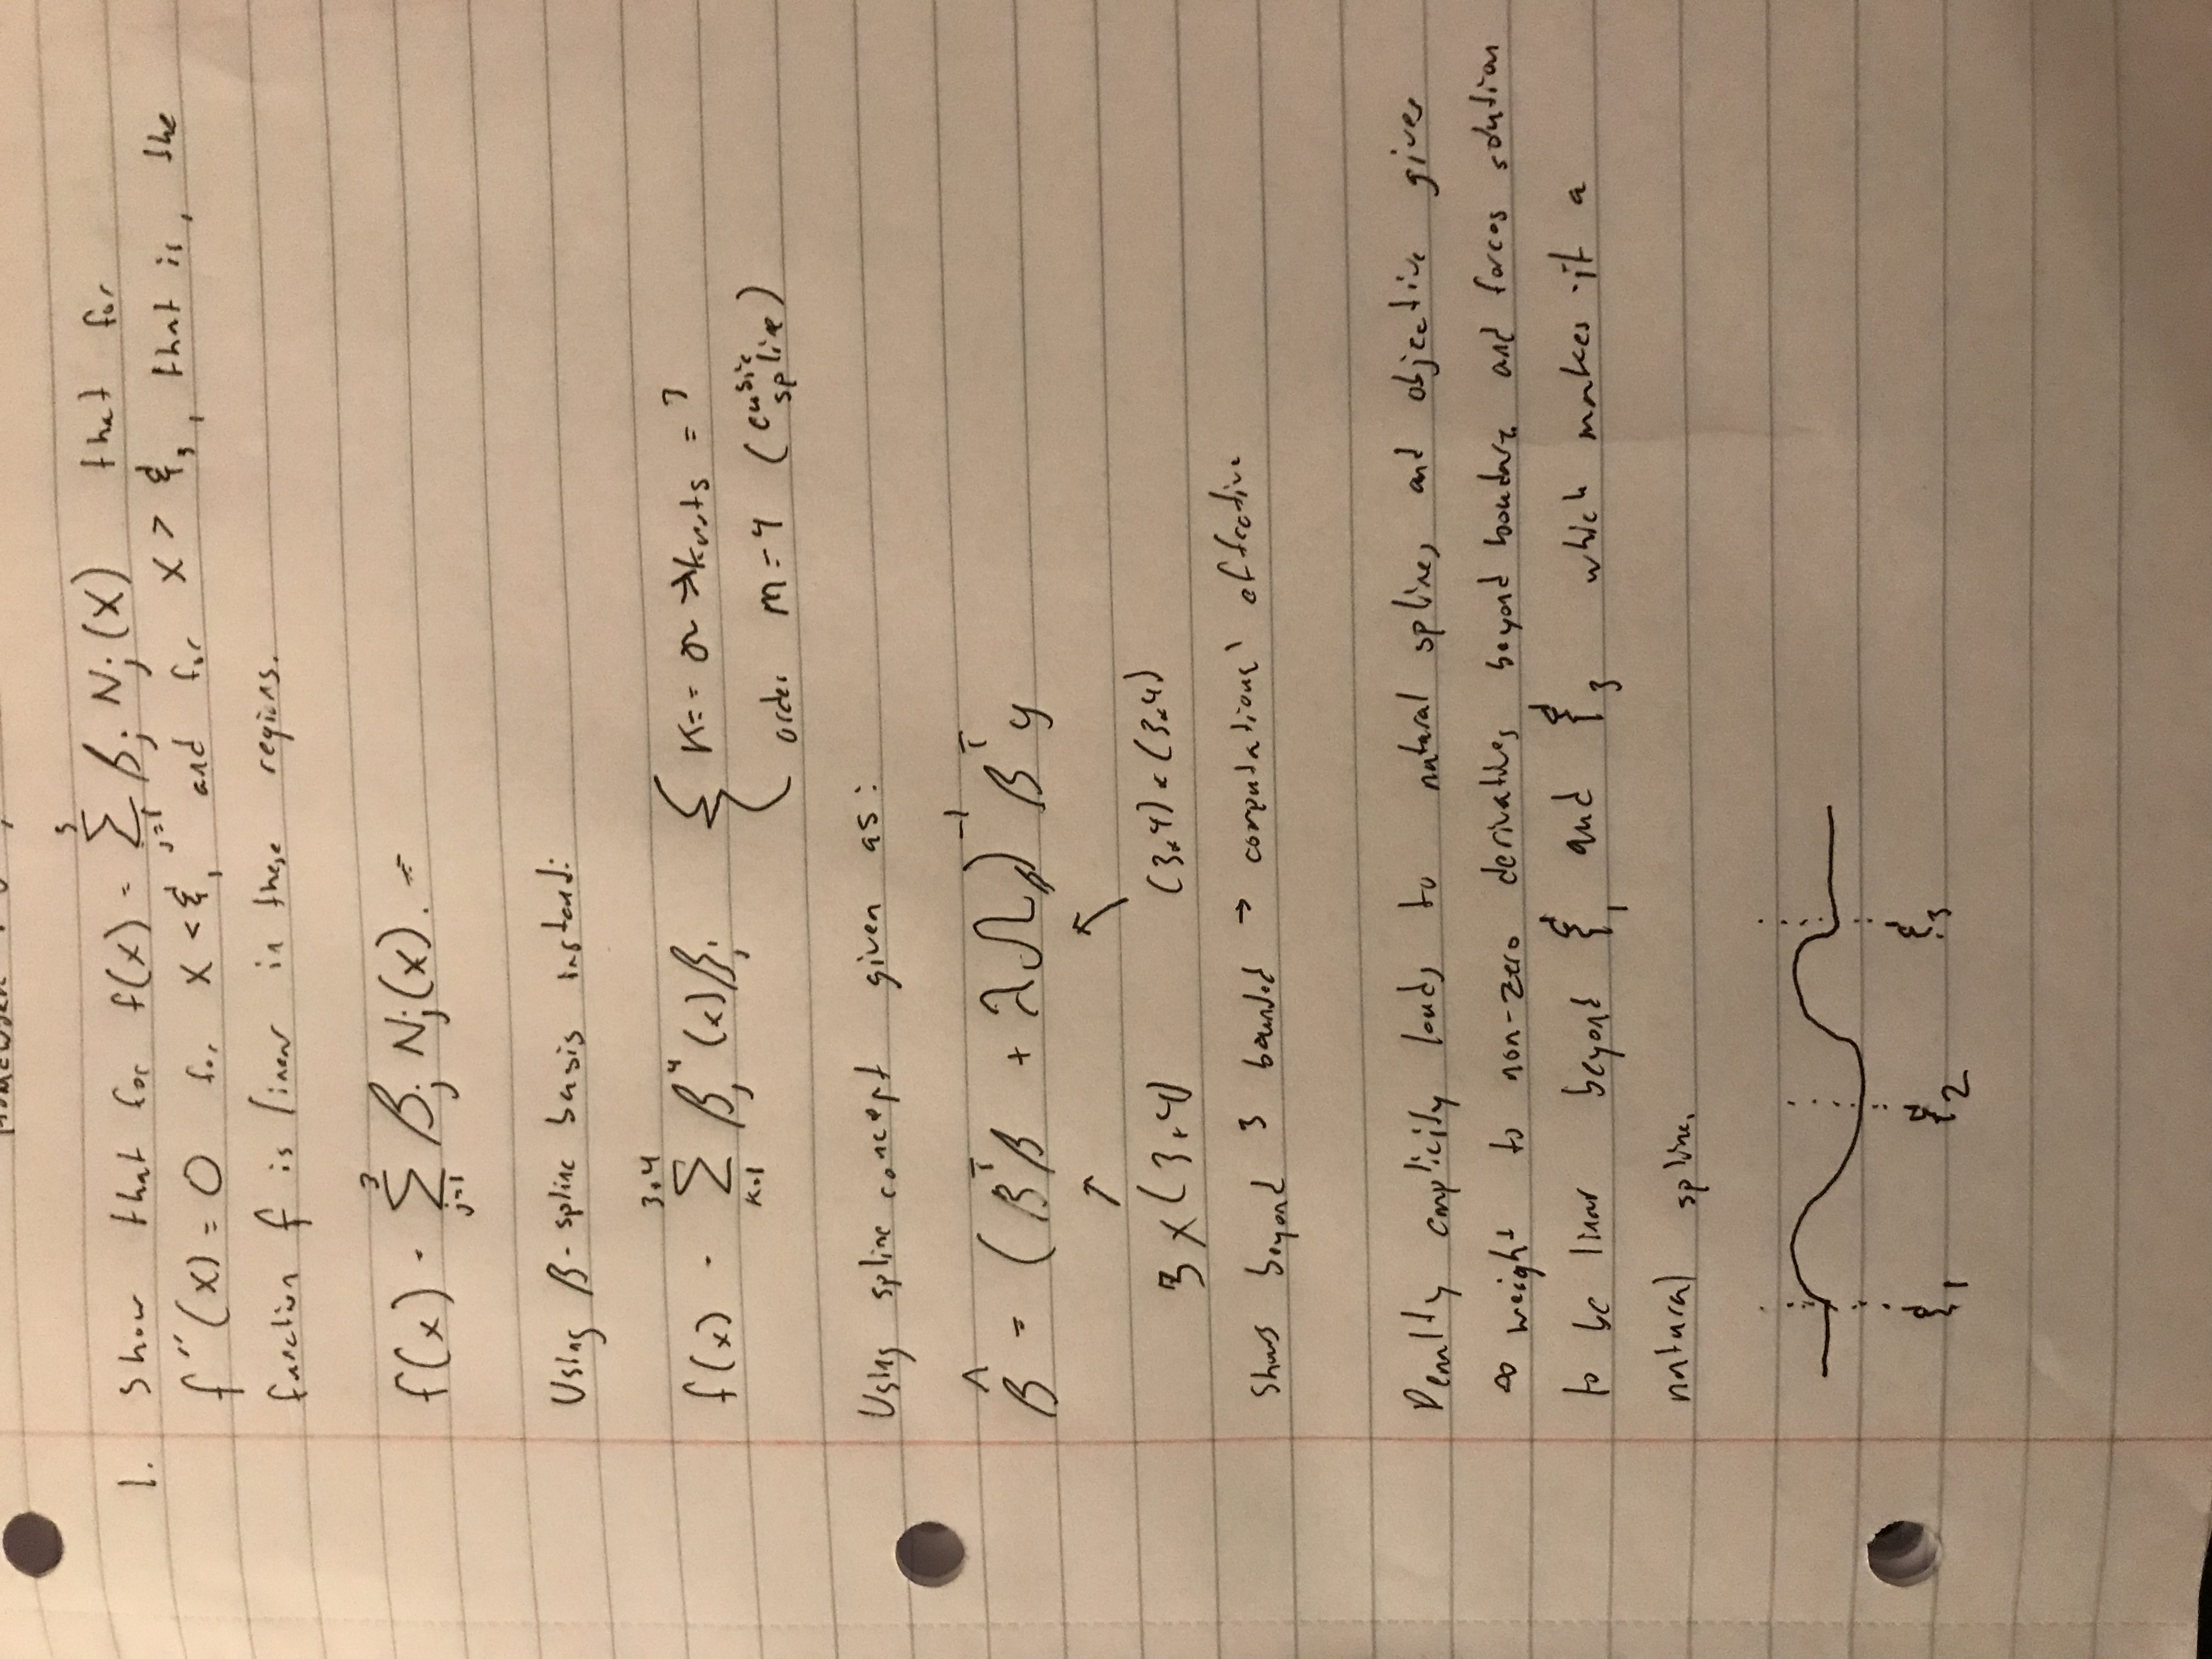 1. Show that for f(x) = Σ_{j=1}^{3} β_j N_j(X) that for
f''(x) = 0 for X < ξ_1 and for X > ξ_3, that is, the
function f is linear in these regions.
f(x) = Σ_{j=1}^{3} β_j N_j(x). =
Using β-spline basis instead:
f(x) = Σ_{K=1}^{3+4} β_j^4 (x) β_j { knots = 3
order m = 4 (cubic spline)
Using spline concept given as:
β̂ = (β^T β + λΩ_β)^{-1} β^T y
3 x (3+4) (3+4) x (3+4)
Shows beyond 3 bounded → computational effective
Penalty leads to natural splines and objective gives
∞ weight to non-zero derivatives beyond boundary and forces solution
to be linear beyond ξ_1 and ξ_3 which makes it a
natural spline.
ξ_1 ξ_2 ξ_3